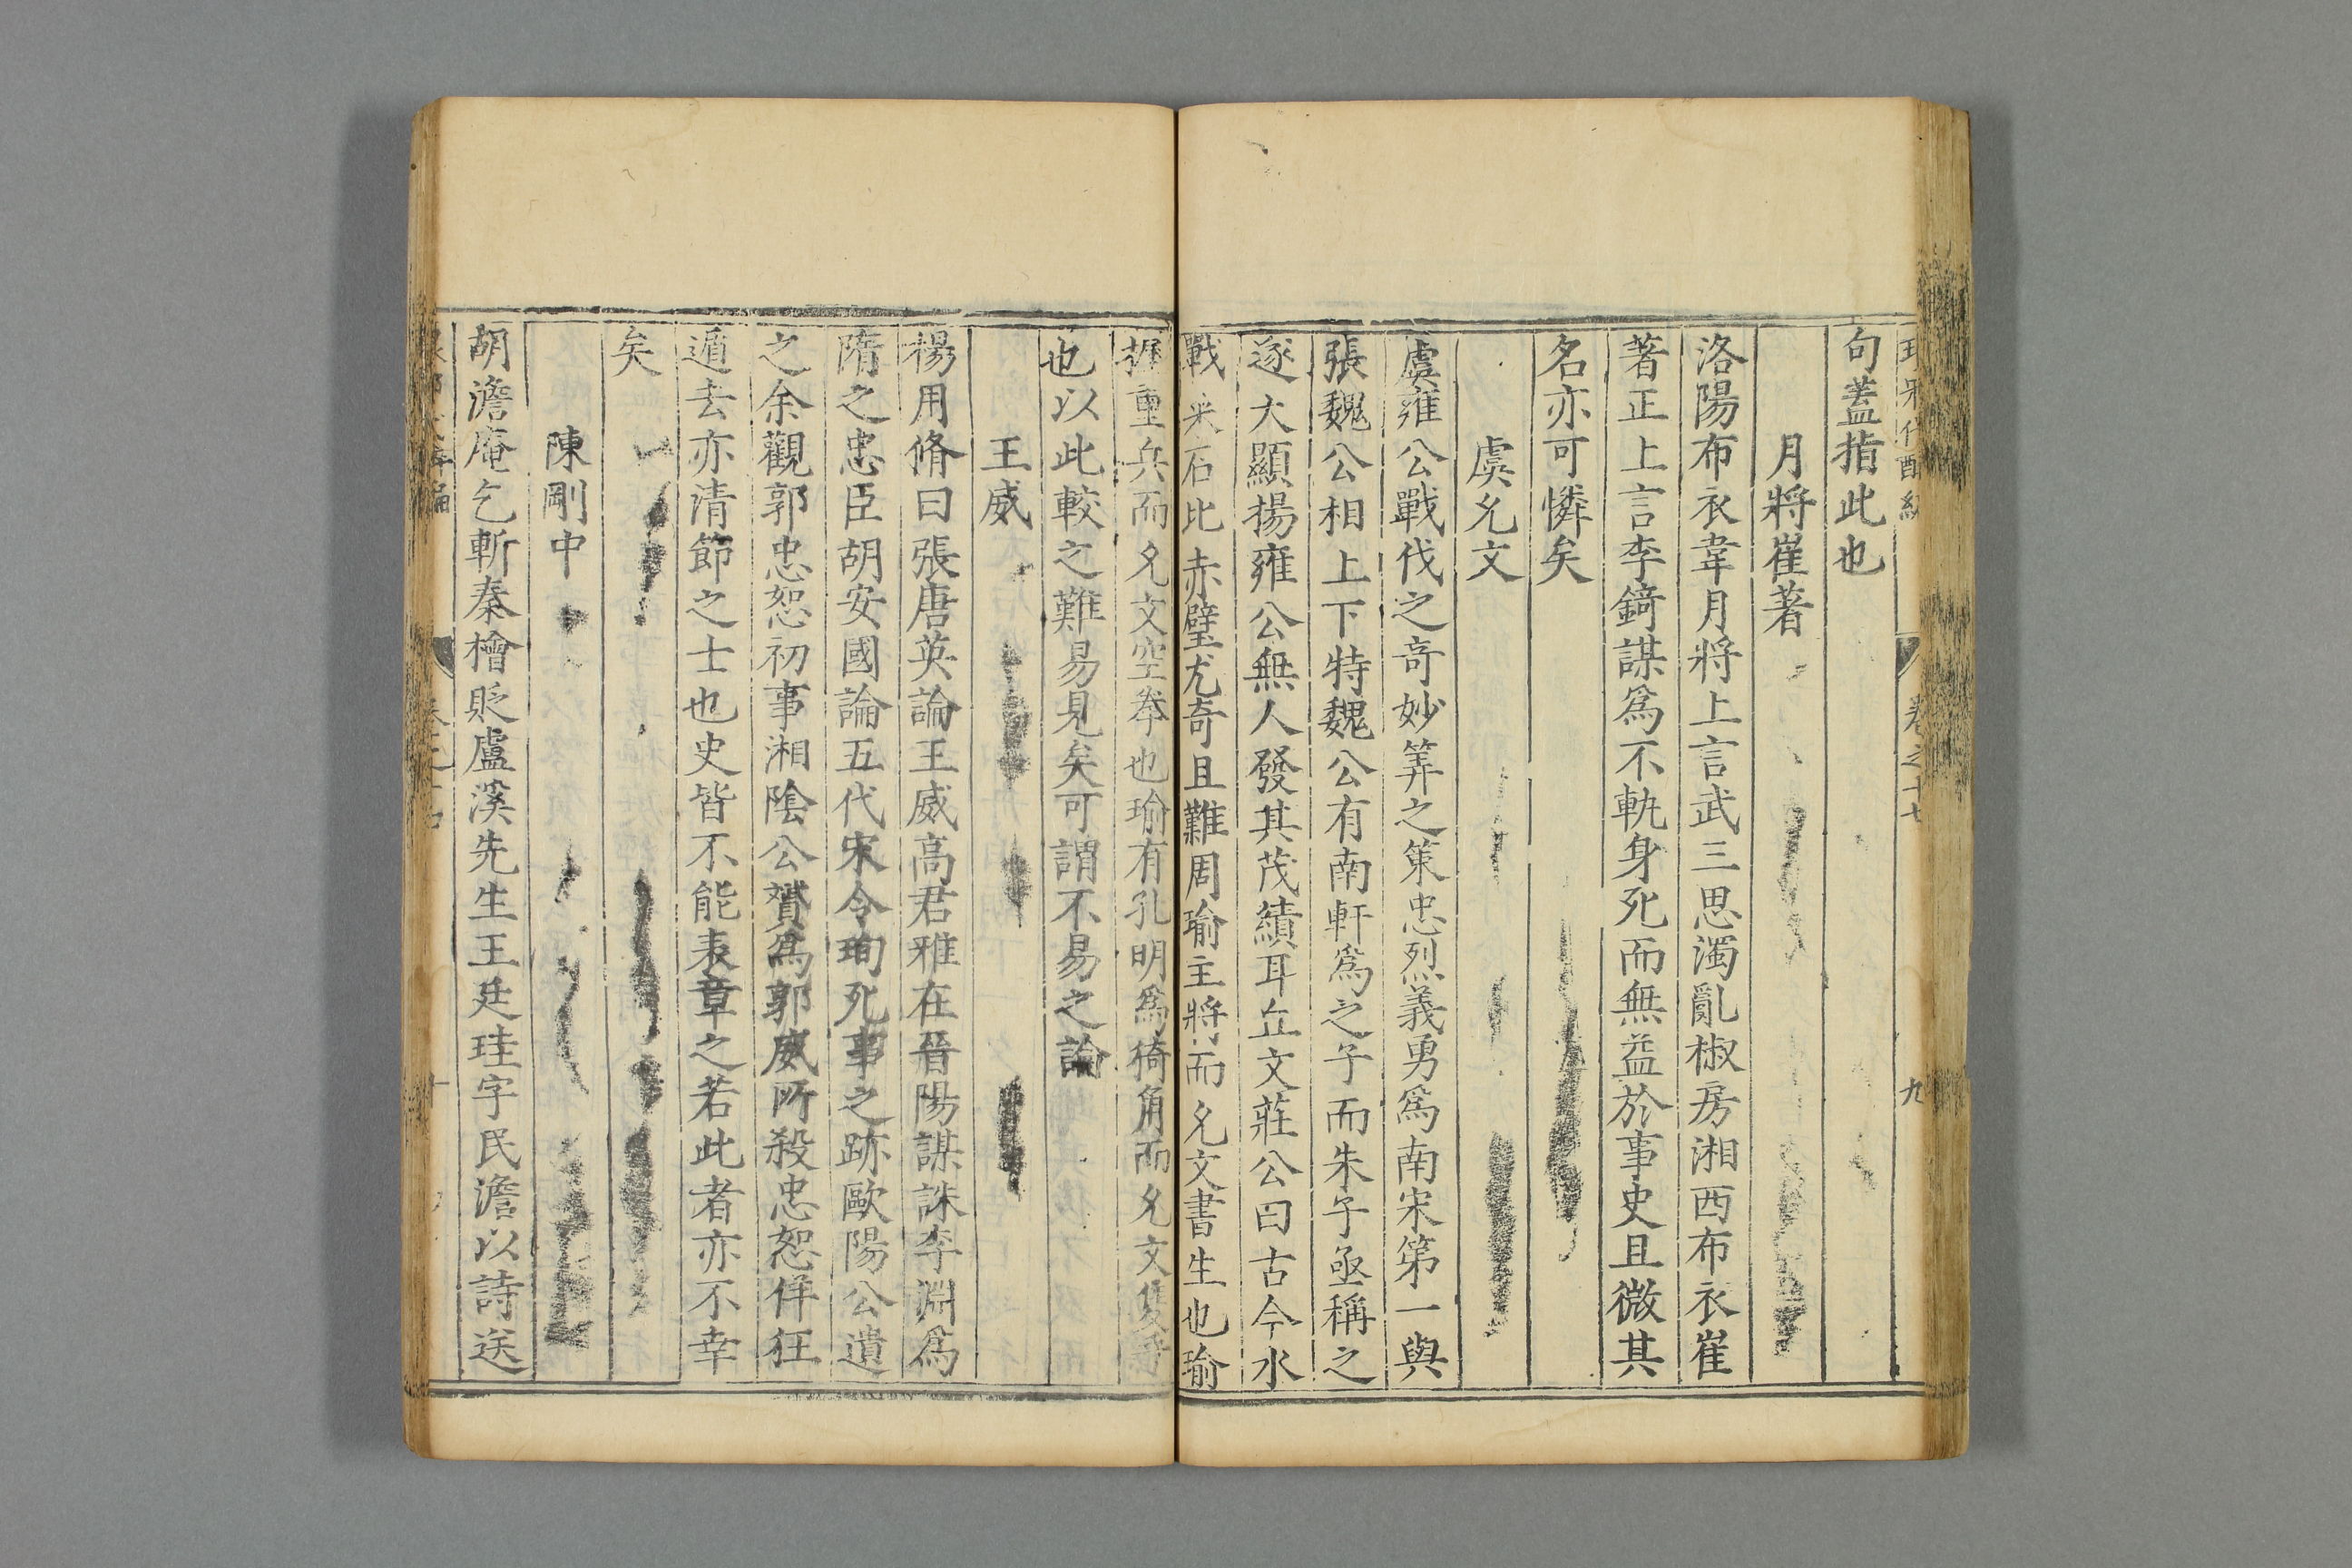 句蓋指此也
月將崔著
洛陽布衣韋月將上言武三思濁亂椒房湘西布衣崔
著正上言李錡謀爲不軌身死而無益於事史且微其
名亦可憐矣
虞允文
虞雍公戰伐之奇妙筭之策忠烈義勇爲南宋第一與
張魏公相上下特魏公有南軒爲之子而朱子亟稱之
遂大顯揚雍公無人發其茂績耳丘文莊公曰古今水
戰采石比赤壁尤奇且難周瑜主將而允文書生也瑜
握重兵而允文空拳也瑜有孔明爲犄角而允文隻
也以此較之難易見矣可謂不易之論
王威
楊用脩曰張唐英論王威高君雅在晉陽謀誅李淵爲
隋之忠臣胡安國論五代宋令珣死事之跡歐陽公遺
之余觀郭忠恕初事湘陰公贇爲郭威所殺忠恕佯狂
遁去亦清節之士也史皆不能表章之若此者亦不幸
矣
陳剛中
胡澹庵乞斬秦檜貶盧溪先生王廷珪字民澹以詩送
卷之十七
九